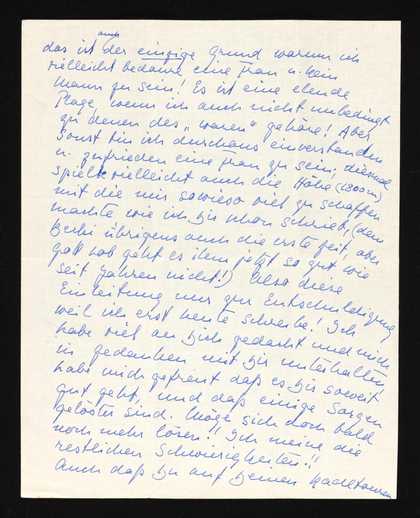 auch
das ist der einzige Grund warum ich
vielleicht bedaure eine Frau u. kein
Mann zu sein! Es ist eine elende
Plage, wenn ich auch nicht unbedingt
zu denen des „waren" gehöre! Aber
sonst bin ich durchaus einverstanden
u. zufrieden eine Frau zu sein, diesmal
spielte vielleicht auch die Höhe (1800m)
mit die mir sowieso viel zu schaffen
machte wie ich Dir schon schrieb, (dem
übrigens auch die erste Zeit, aber
gottlob geht es ihm jetzt so gut wie
seit Jahren nicht!) Also diese
Einleitung nur zur Entschuldigung
weil ich erst heute schreibe! Ich
habe viel an Dich gedacht und mich
in Gedanken mit Dir unterhalten
habe mich gefreut daß es Dir soweit
gut geht, und daß einige Sorgen
gelöster sind. Möge sich doch bald
noch mehr lösen!! Ich meine die
restlichen Schwierigkeiten!!
Auch daß Du auf Deinen